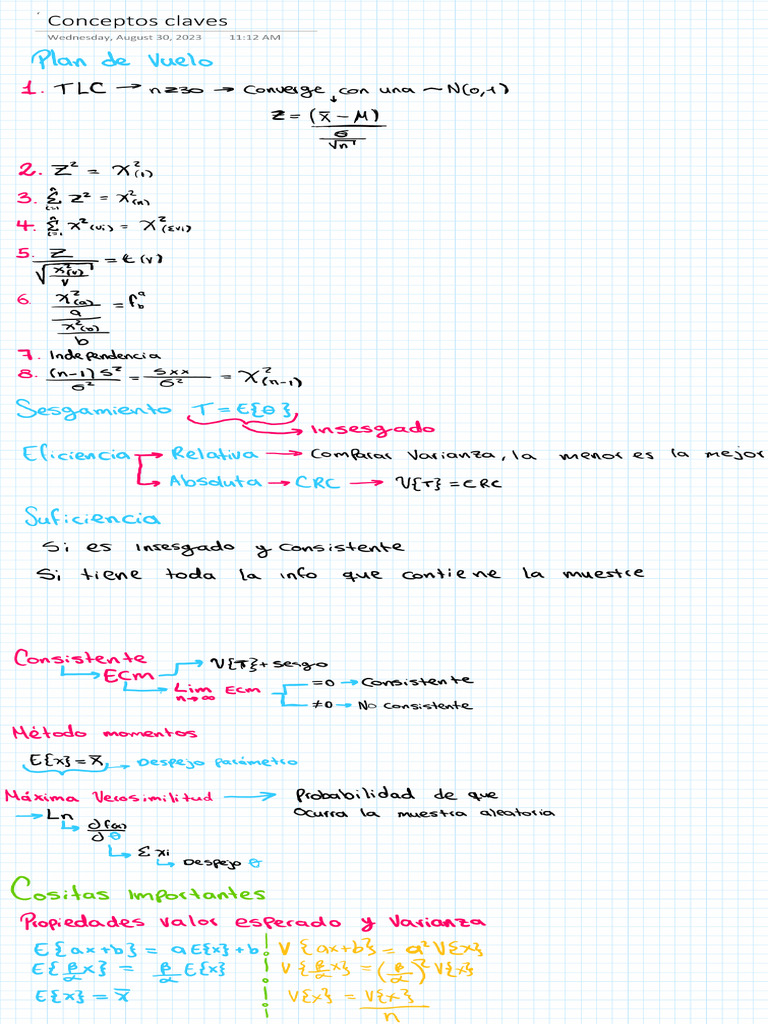 Conceptos claves
Wednesday, August 30, 2023 11:12 AM
Plan de vuelo
1. TLC → n≥30 → Converge con una ~N(0,1)
Z = (x̄ - μ) / (σ/√n)
2. Z² = X²(1)
3. Σⁿᵢ₌₁ Z² = X²(n)
4. Σⁿᵢ₌₁ X²(vi) = X²(Σvi)
5. Z / √(X²(v)/v) = t(v)
6. (X²(a)/a) / (X²(b)/b) = fᵃb
7. Independencia
8. (n-1)S²/σ² = Sxx/σ² = X²(n-1)
Sesgamiento T = E{θ}
→ Insesgado
Eficiencia → Relativa → Comparar Varianza, la menor es la mejor
→ Absoluta → CRC → V{T} = CRC
Suficiencia
Si es insesgado y consistente
Si tiene toda la info que contiene la muestre
Consistente
→ ECM → V{T} + sesgo
→ Lim n→∞ ECM
=0 → Consistente
≠0 → No consistente
Método momentos
E{x} = X̄ → Despejo parámetro
Máxima Verosimilitud → Probabilidad de que
ocurra la muestra aleatoria
→ Ln
→ ∂f(x)/∂θ
→ Σxi
→ Despejo θ
Cositas importantes
Propiedades valor esperado y Varianza
E{ax+b} = aE{x}+b V{ax+b} = a²V{x}
E{β/α x} = β/α E{x} V{β/α x} = (β/α)² V{x}
E{x} = x̄ V{x} = V{x}/n